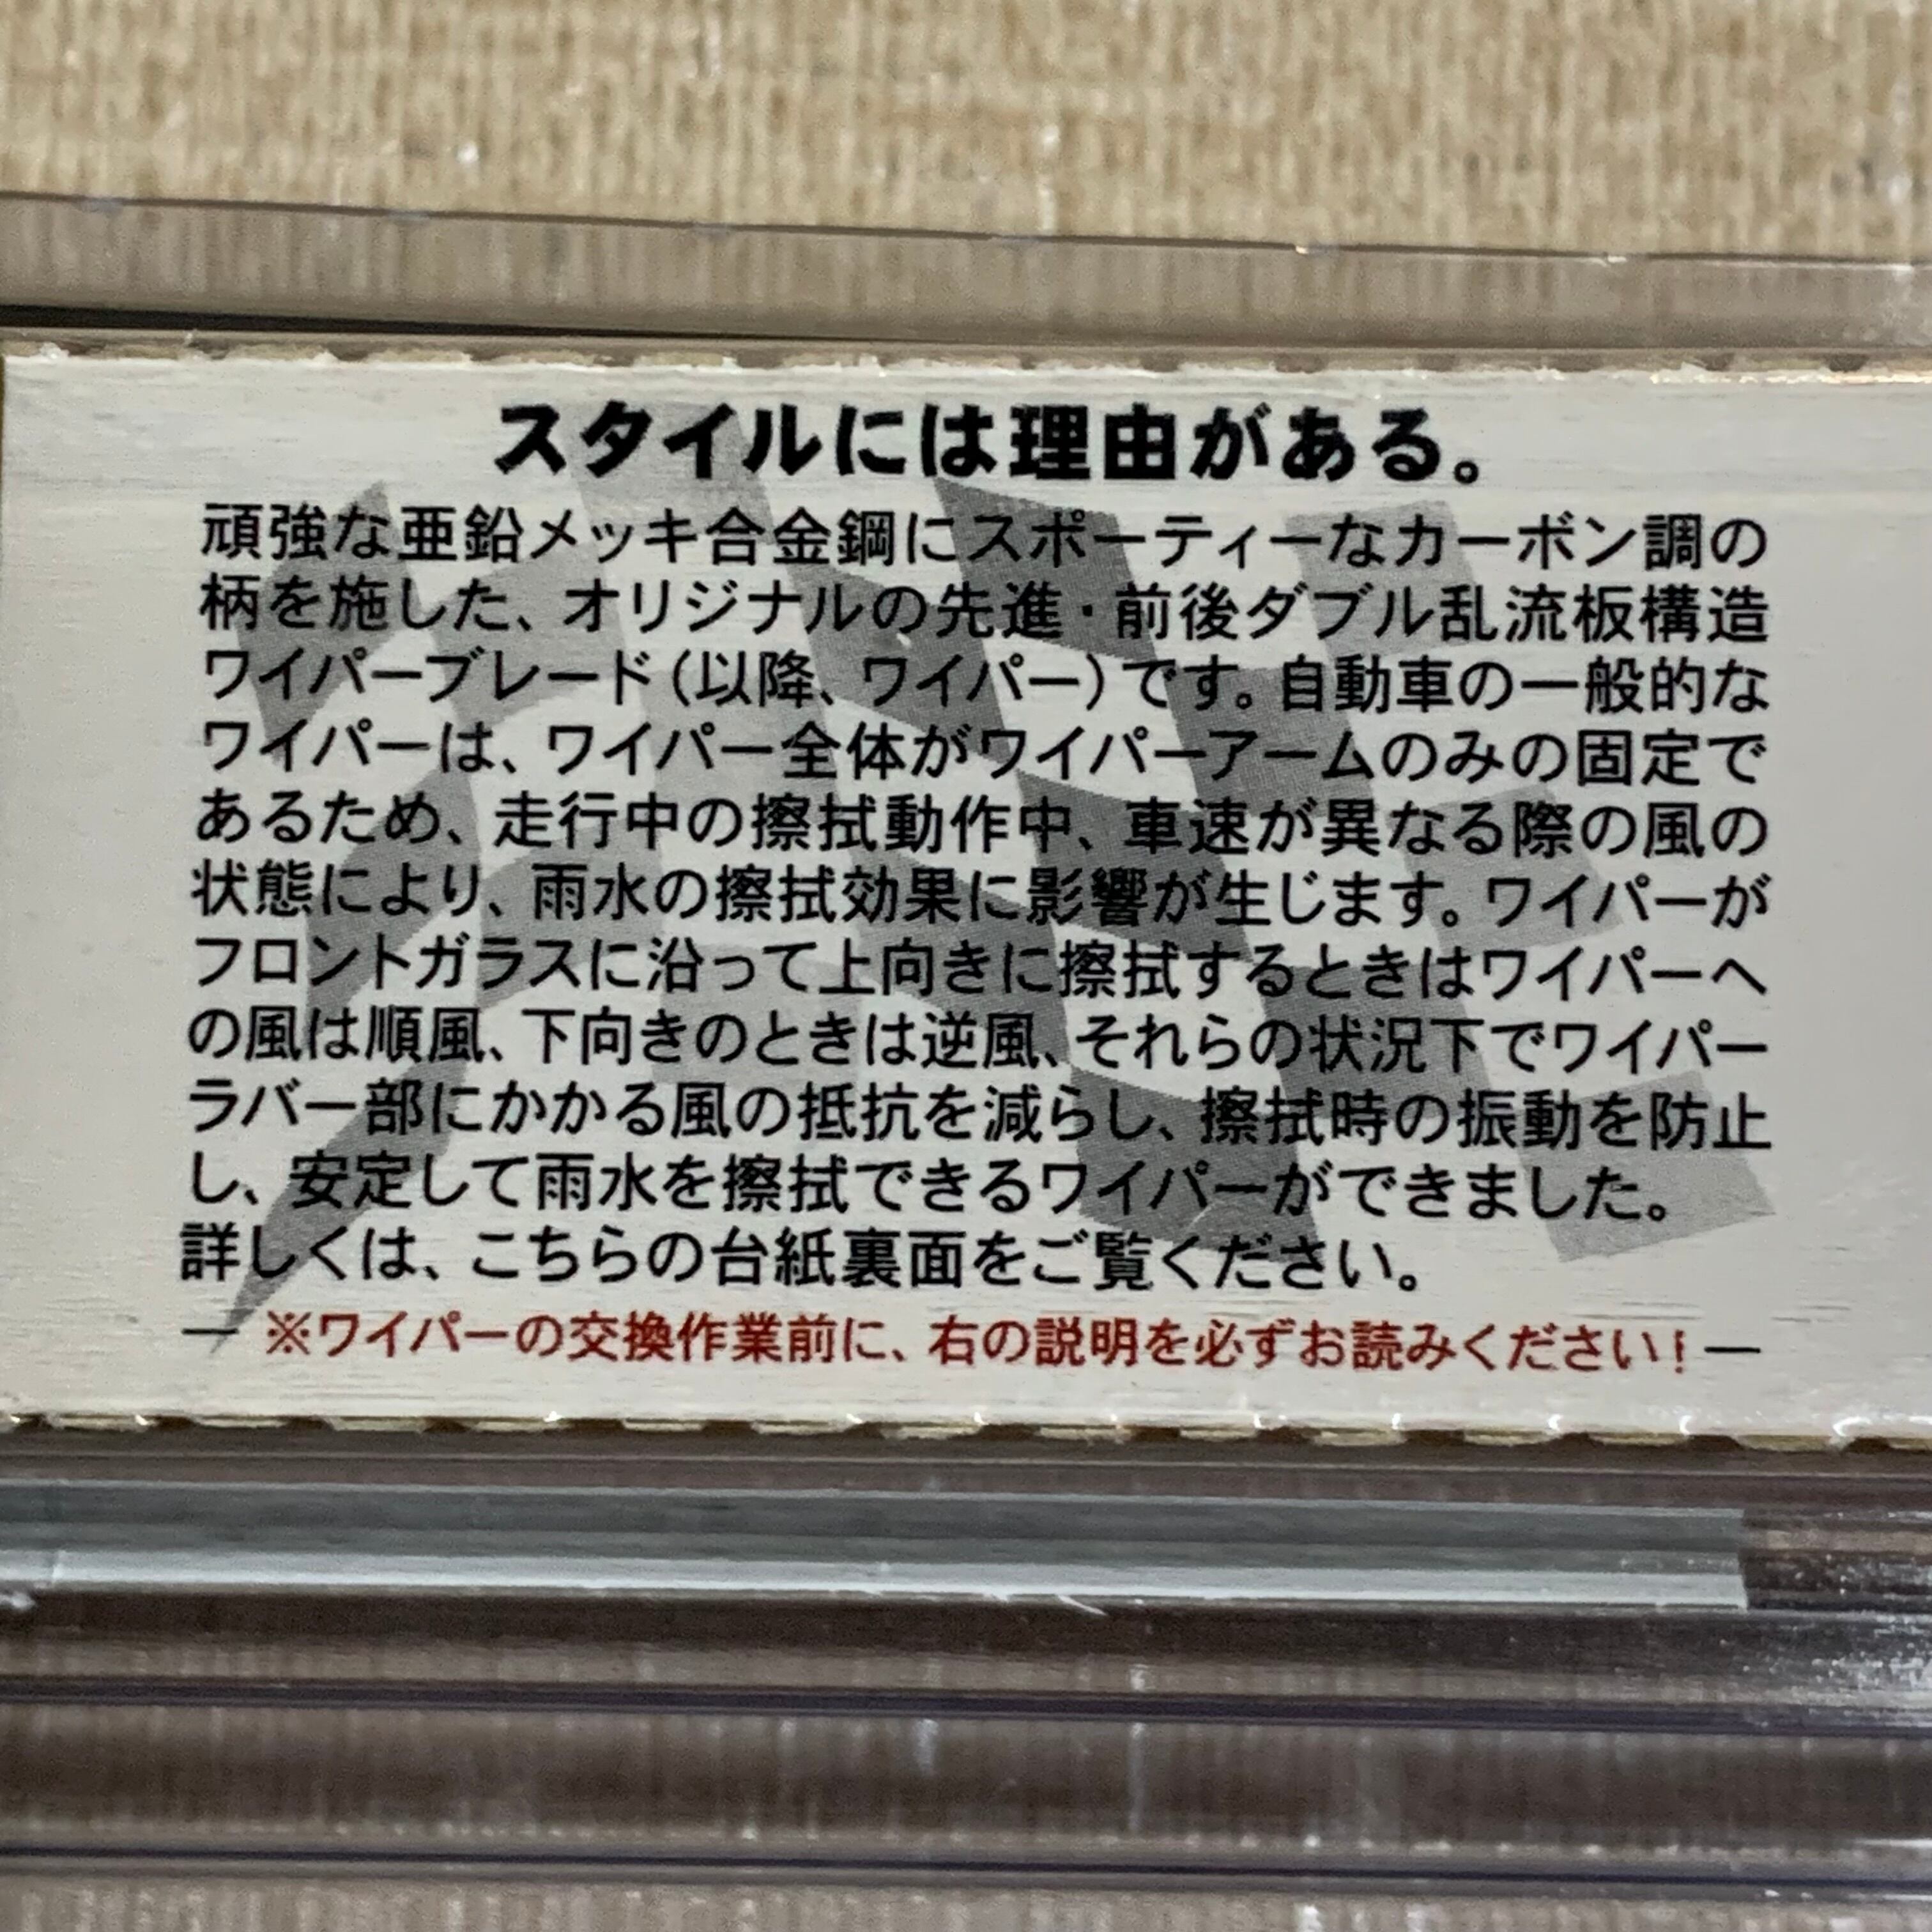 スタイルには理由がある。
頑強な亜鉛メッキ合金鋼にスポーティーなカーボン調の
柄を施した、オリジナルの先進・前後ダブル乱流板構造
ワイパーブレード（以降、ワイパー）です。自動車の一般的な
ワイパーは、ワイパー全体がワイパーアームのみの固定で
あるため、走行中の擦拭動作中、車速が異なる際の風の
状態により、雨水の擦拭効果に影響が生じます。ワイパーが
フロントガラスに沿って上向きに擦拭するときはワイパーへ
の風は順風、下向きのときは逆風、それらの状況下でワイパー
ラバー部にかかる風の抵抗を減らし、擦拭時の振動を防止
し、安定して雨水を擦拭できるワイパーができました。
詳しくは、こちらの台紙裏面をご覧ください。
― ※ワイパーの交換作業前に、右の説明を必ずお読みください！―